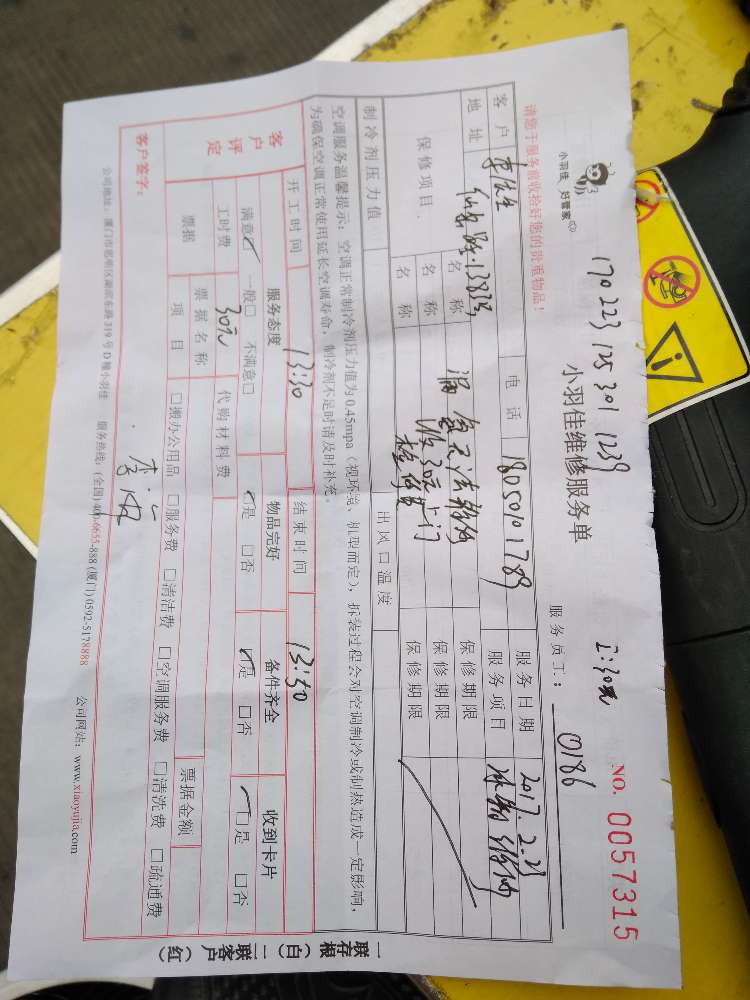 170223125301 1239 工:30元
小羽佳 好管家
小羽佳维修服务单 NO. 0057315
请您于服务前收拾好您的贵重物品! 服务员工: 0186
客户 李先生 电话 18050101789 服务日期 2017.2.23
地址 138号 服务项目 冰箱维修
保修项目 名称 漏氟无法维修 保修期限
名称 收30元上门 保修期限
名称 检修费 保修期限
制冷剂压力值 出风口温度
空调服务温馨提示: 空调正常制冷剂压力值为0.45mpa (视环境、机型而定), 拆装过程会对空调制冷或制热造成一定影响,
为确保空调正常使用延长空调寿命, 制冷剂不足时请及时补充。
开工时间 13:30 结束时间 13:50
客户评定 服务态度 物品完好 备件齐全 收到卡片
满意☑ 一般□ 不满意□ ☑是 □否 ☑是 □否 ☑是 □否
工时费 30元 代购材料费
票据 票据名称 票据金额
项目 □搬办公用品 □服务费 □清洁费 □空调服务费 □清洗费 □疏通费
客户签字: 李
公司地址: 厦门市思明区湖滨东路319号D幢小羽佳 服务热线: (全国)400-6655-888 (厦门)0592-5178888 公司网站: www.xiaoyujia.com
一联存根(白) 二联客户(红)